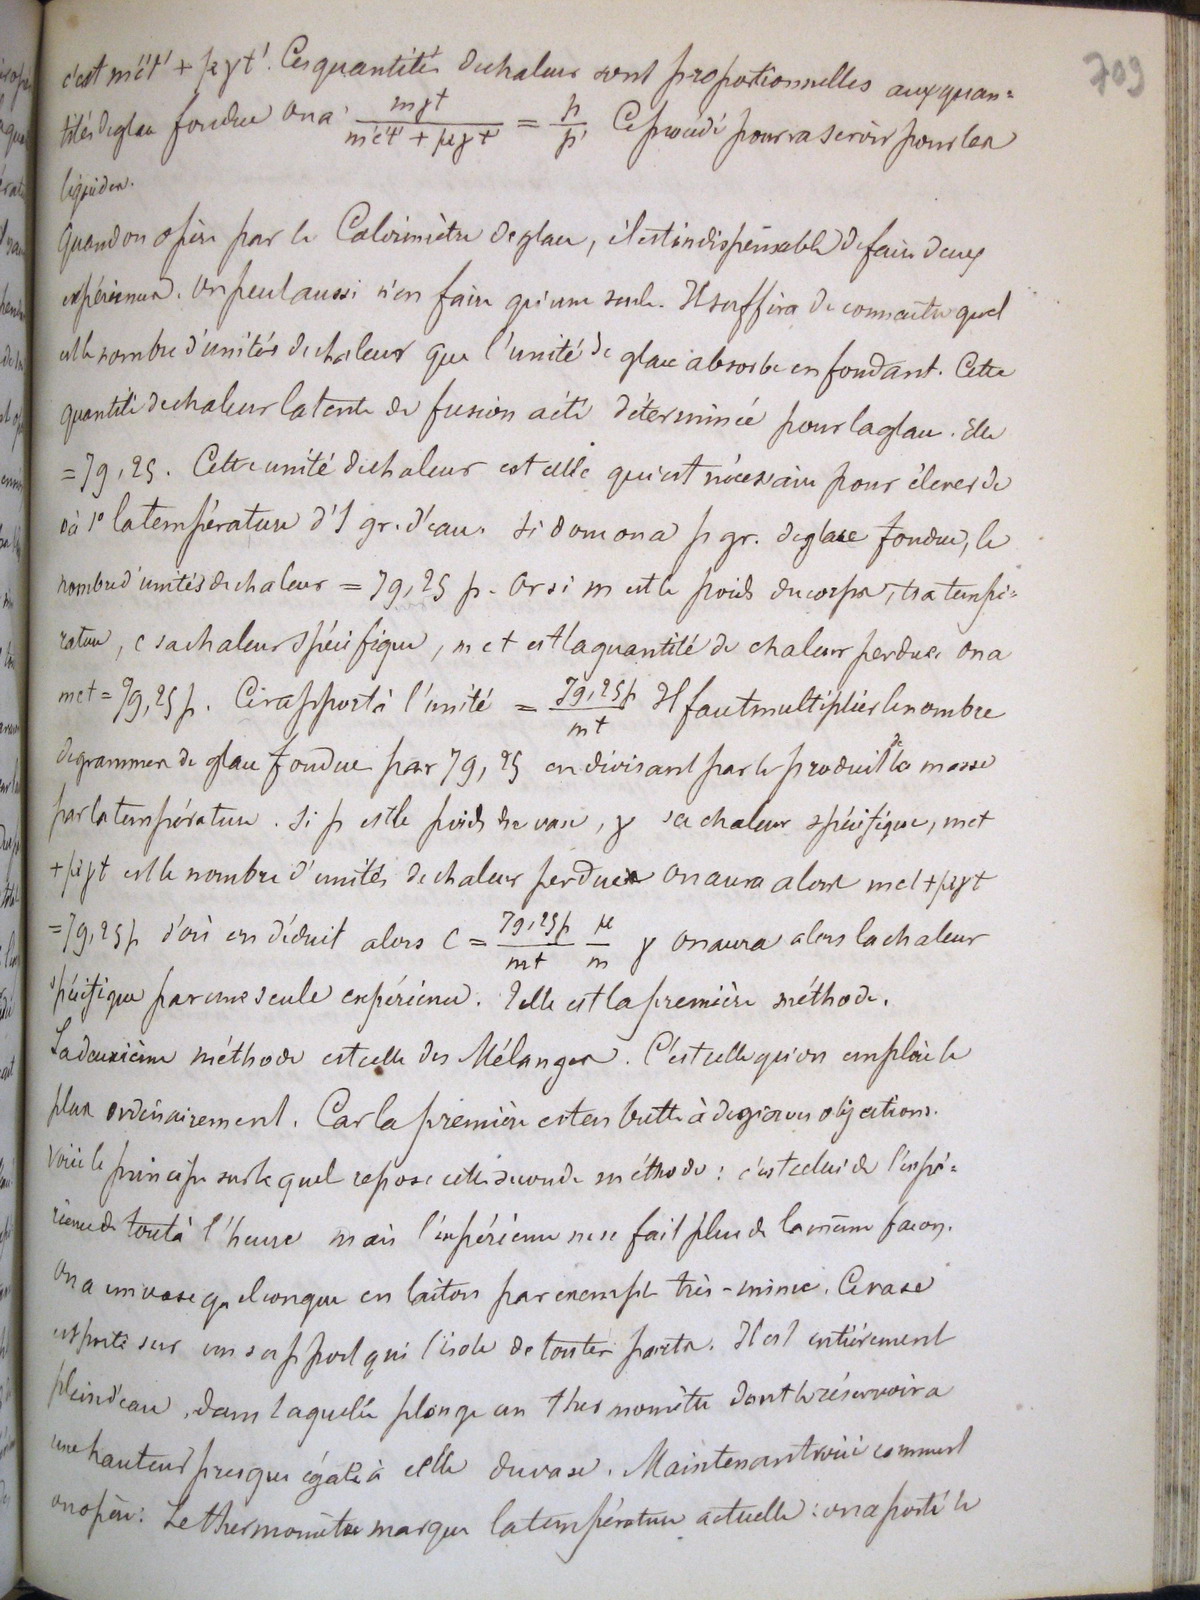 709
c'est m'c't' + μγt'. Ces quantités de chaleur sont proportionnelles aux quan=
tités de glace fondue on a mγt / m'c't' + μγt' = p / p' Ce procédé pourra servir pour les
liquides.
Quand on opère par le Calorimètre de glace, il est indispensable de faire deux
expériences. On peut aussi n'en faire qu'une seule. Il suffira de connaître quel
est le nombre d'unités de chaleur que l'unité de glace absorbe en fondant. Cette
quantité de chaleur latente de fusion a été déterminée pour la glace. Elle
= 79,25. Cette unité de chaleur est celle qui est nécessaire pour élever de
0 à 1° la température d'1 gr. d'eau. Si donc on a p gr. de glace fondue, le
nombre d'unités de chaleur = 79,25 p. Or si m est le poids du corps, t sa tempé=
rature, c sa chaleur spécifique, mct est la quantité de chaleur perdue. On a
mct = 79,25 p. Ce rapport à l'unité = 79,25p / mt Il faut multiplier le nombre
de grammes de glace fondue par 79,25 en divisant par le produit de la masse
par la température. Si μ est le poids du vase, γ sa chaleur spécifique, mct
+ μγt est le nombre d'unités de chaleur perdues on aura alors mct + μγt
= 79,25 p d'où on déduit alors c = 79,25p / mt μ / m γ on aura alors la chaleur
spécifique par une seule expérience. Telle est la première méthode.
La deuxième méthode est celle des Mélanges. C'est celle qu'on emploie le
plus ordinairement. Car la première est en butte à de graves objections.
Voici le principe sur lequel repose cette seconde méthode : c'est celui de l'expé=
rience de tout à l'heure mais l'expérience ne se fait plus de la même façon.
On a un vase quelconque en laiton par exemple très-mince. Ce vase
est porté sur un support qui l'isole de toutes parts. Il est entièrement
plein d'eau, dans laquelle plonge un thermomètre dont le réservoir a
une hauteur presque égale à celle du vase. Maintenant voici comment
on opère : Le thermomètre marque la température actuelle : on a porté le